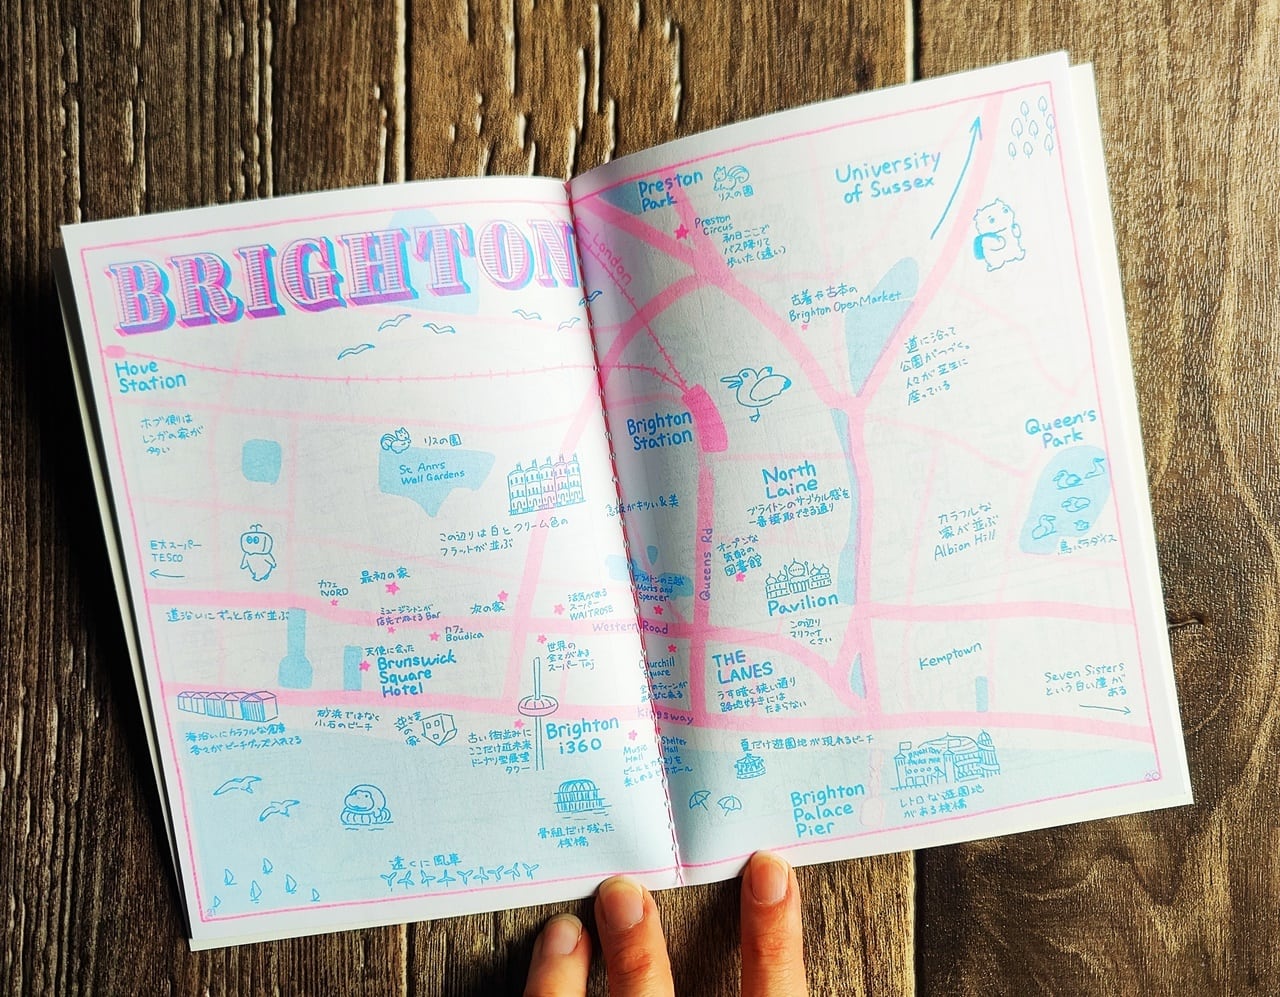 BRIGHTON
Hove
Station
ホブ側は
レンガの家が
多い
リスの園
St. Ann's
Well Gardens
この辺りは白とクリーム色の
フラットが並ぶ
巨大スーパー
TESCO
カフェ
NORD
最初の家
道沿いにずっと店が並ぶ
ミュージシャンが
Bar
次の家
カフェ
Boudica
活気がある
スーパー
WAITROSE
天使に会った
Brunswick
Square
Hotel
世界の
全てがある
スーパー Taj
海沿いにカラフルな倉庫
各々がビーチグッズ入れてる
砂浜ではなく
小石のビーチ
逆さまの
家
古い街並みに
ここだけ近未来
ドーナツ型展望
タワー
Brighton
i360
骨組だけ残った
桟橋
遠くに風車
21
Preston
Park
リスの園
London
Preston
Circus
初日ここで
バス降りて
歩いた(遠い)
University
of Sussex
古着や古本の
Brighton Open Market
道に沿って
公園がつづく。
人々が芝生に
座っている
Brighton
Station
Queen's
Park
鳥パラダイス
North
Laine
ブライトンのサブカル感を
一番摂取できる通り
急坂がキツい&美
オープンな
気配の
図書館
カラフルな
家が並ぶ
Albion Hill
Queens Rd
Marks and
Spencer
Pavilion
この辺り
マリファナ
くさい
Western Road
Churchill
Square
THE
LANES
うす暗く狭い通り
路地好きには
たまらない
Kemptown
Seven Sisters
という白い崖が
ある
Kingsway
Music
Hall
Shelter
Hall
夏だけ遊園地が現れるビーチ
BRIGHTON
PALACE PIER
Brighton
Palace
Pier
レトロな遊園地
がある桟橋
20